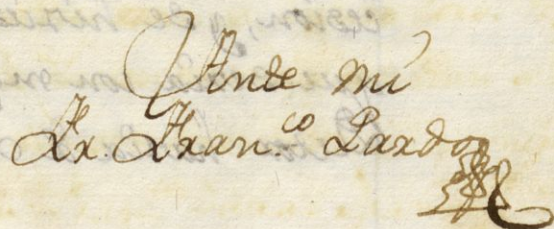 Ante mí
Fr. Fran.co Pardo